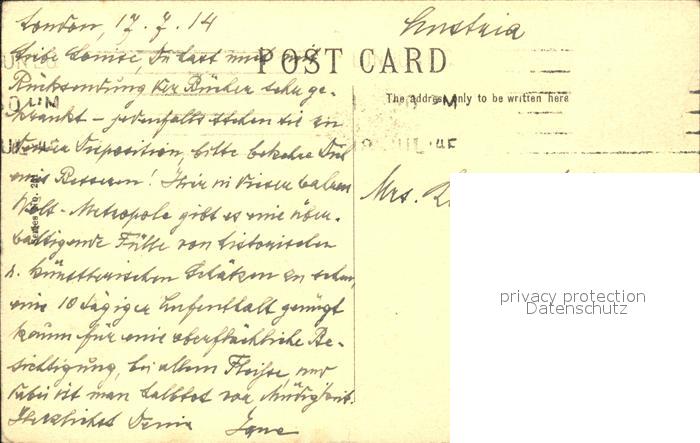 London, 17.7.14
Austria
POST CARD
Liebe Louise, Du hast mich mit
Rücksendung der Bücher sehr ge-
The address only to be written here
kränkt – jedenfalls stehen sie zu
Deiner Disposition, bitte bekehre Dich
eines Besseren! Hier in dieser wahren
Mrs.
Welt-Metropole gibt es eine über-
wältigende Fülle von historischen
u. künstlerischen Schätzen zu sehen,
eine 10 tägiger Aufenthalt genügt
privacy protection
Datenschutz
kaum für eine oberflächliche Be-
sichtigung, bei allem Fleisse, und
dabei ist man halbtot vor Müdigkeit.
Herzlichst Deine